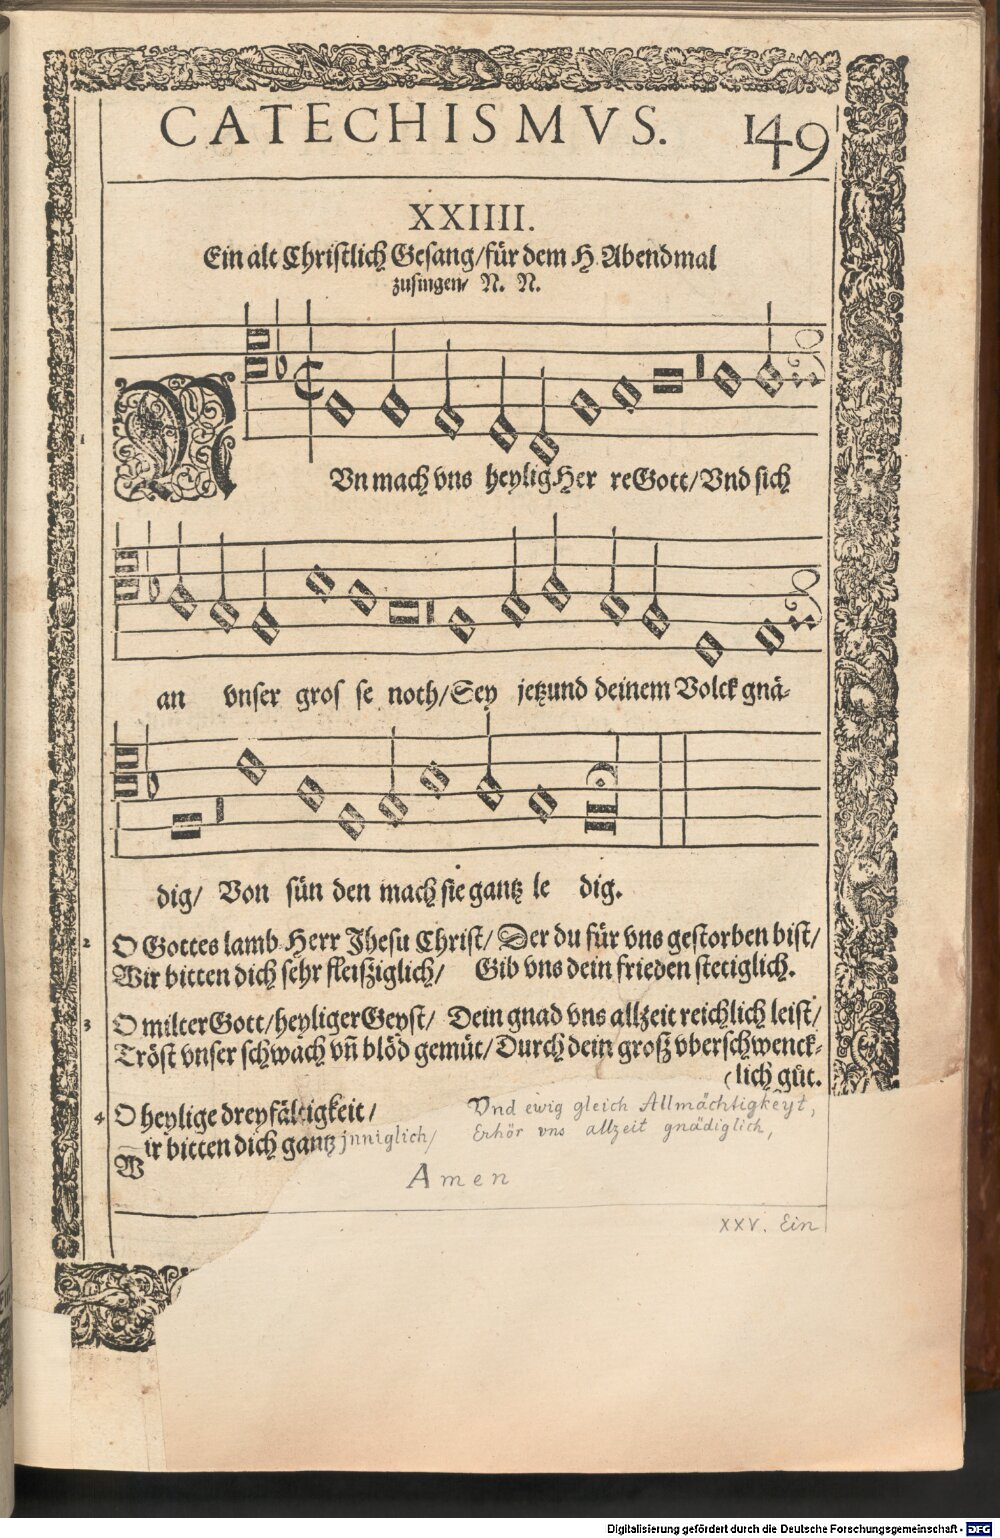 CATECHISMVS. 149
XXIIII.
Ein alt Christlich Gesang/für dem H. Abendmal
zusingen/ N. N.
1
NVn mach vns heylig Her re Gott/Vnd sich
an vnser gros se noth/Sey jetzund deinem Volck gnä-
dig/ Von sün den mach sie gantz le dig.
2 O Gottes lamb Herr Jhesu Christ/ Der du für vns gestorben bist/
Wir bitten dich sehr fleisziglich/ Gib vns dein frieden stetiglich.
3 O milter Gott/heyliger Geyst/ Dein gnad vns allzeit reichlich leist/
Tröst vnser schwach vñ blöd gemüt/Durch dein grosz vberschwenck-
(lich güt.
4 O heylige dreyfältigkeit/ Vnd ewig gleich Allmächtigkeyt,
Wir bitten dich gantz jnniglich/ Erhör vns allzeit gnädiglich,
Amen
XXV. Ein
Digitalisierung gefördert durch die Deutsche Forschungsgemeinschaft - DFG